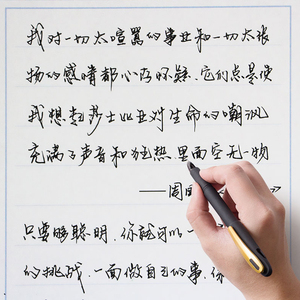 我对一切太喧嚣的事业和一切太张
扬的感情都心存怀疑,它们总是使
我想起莎士比亚对生命的嘲讽
充满了声音和狂热,里面空无一物
——周
只要够聪明,你就可以一
的挑战,一面做自己的事,你